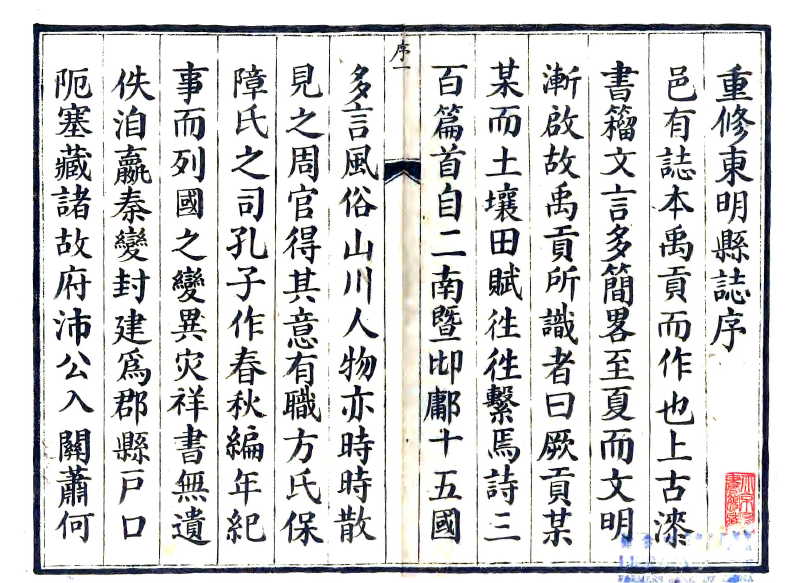 重修東明縣誌序
邑有誌本禹貢而作也上古漆
書籀文言多簡畧至夏而文明
漸啟故禹貢所識者曰厥貢某
某而土壤田賦徃徃繫焉詩三
百篇首自二南暨邶鄘十五國
序一
多言風俗山川人物亦時時散
見之周官得其意有職方氏保
障氏之司孔子作春秋編年紀
事而列國之變異灾祥書無遺
佚洎嬴秦變封建爲郡縣戸口
阨塞藏諸故府沛公入關蕭何